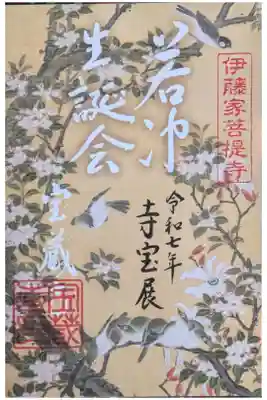 伊藤家菩提寺
若冲
生誕会
宝蔵
令和七年
寺宝展